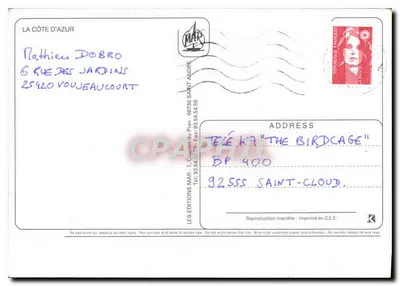 LA CÔTE D'AZUR
Mathieu DOBRO
6 RUE DES JARDINS
25420 VOUJEAUCOURT
MAR
LES EDITIONS MAR
06730 SAINT ANDRÉ
ADDRESS
TÉLÉ K7 "THE BIRDCAGE"
BP 400
92555 SAINT-CLOUD.
Reproduction interdite - Imprimé en C.E.E.